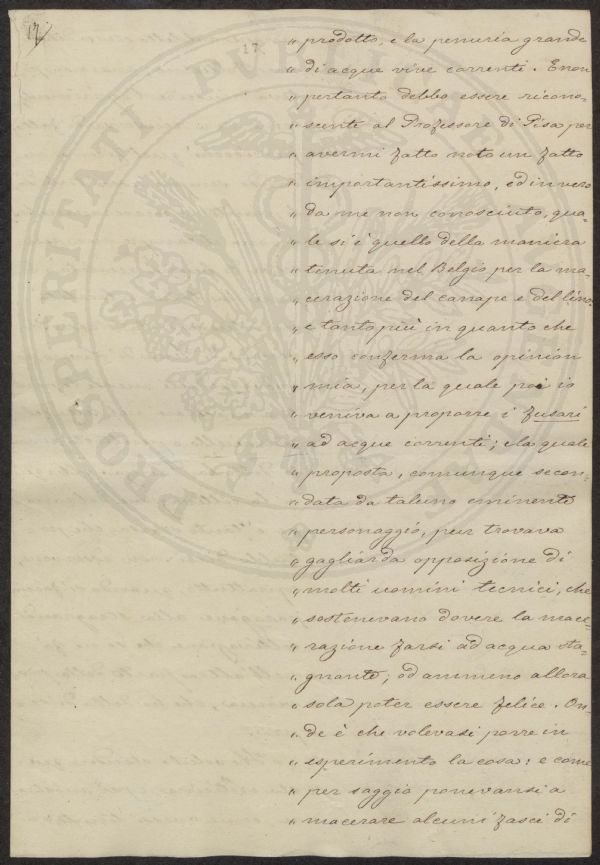 17
17.
" prodotto, e la penuria grande
" di acque vive correnti. Enon
" pertanto debbo essere ricono-
" scente al Professore di Pisa per
" avermi fatto noto un fatto
" importantissimo, ed in vero
" da me non conosciuto, qua-
" le si è quello della maniera
" tenuta nel Belgio per la ma-
" cerazione del canape e del lino:
" e tanto più in quanto che
" esso conferma la opinion
" mia, per la quale poi io
" veniva a proporre i fusari
" ad acque correnti; e la quale
" proposta, comunque secon-
" data da taluno eminente
" personaggio, pur trovava
" gagliarda opposizione di
" molti uomini tecnici, che
" sostenevano dovere la mace-
" razione farsi ad acqua sta-
" gnante; od ammeno allora
" sola poter essere felice. On-
" de è che volevasi porre in
" esperimento la cosa: e come
" per saggio ponevansi a
" macerare alcuni fasci di
PROSPERITATI PUBLICAE